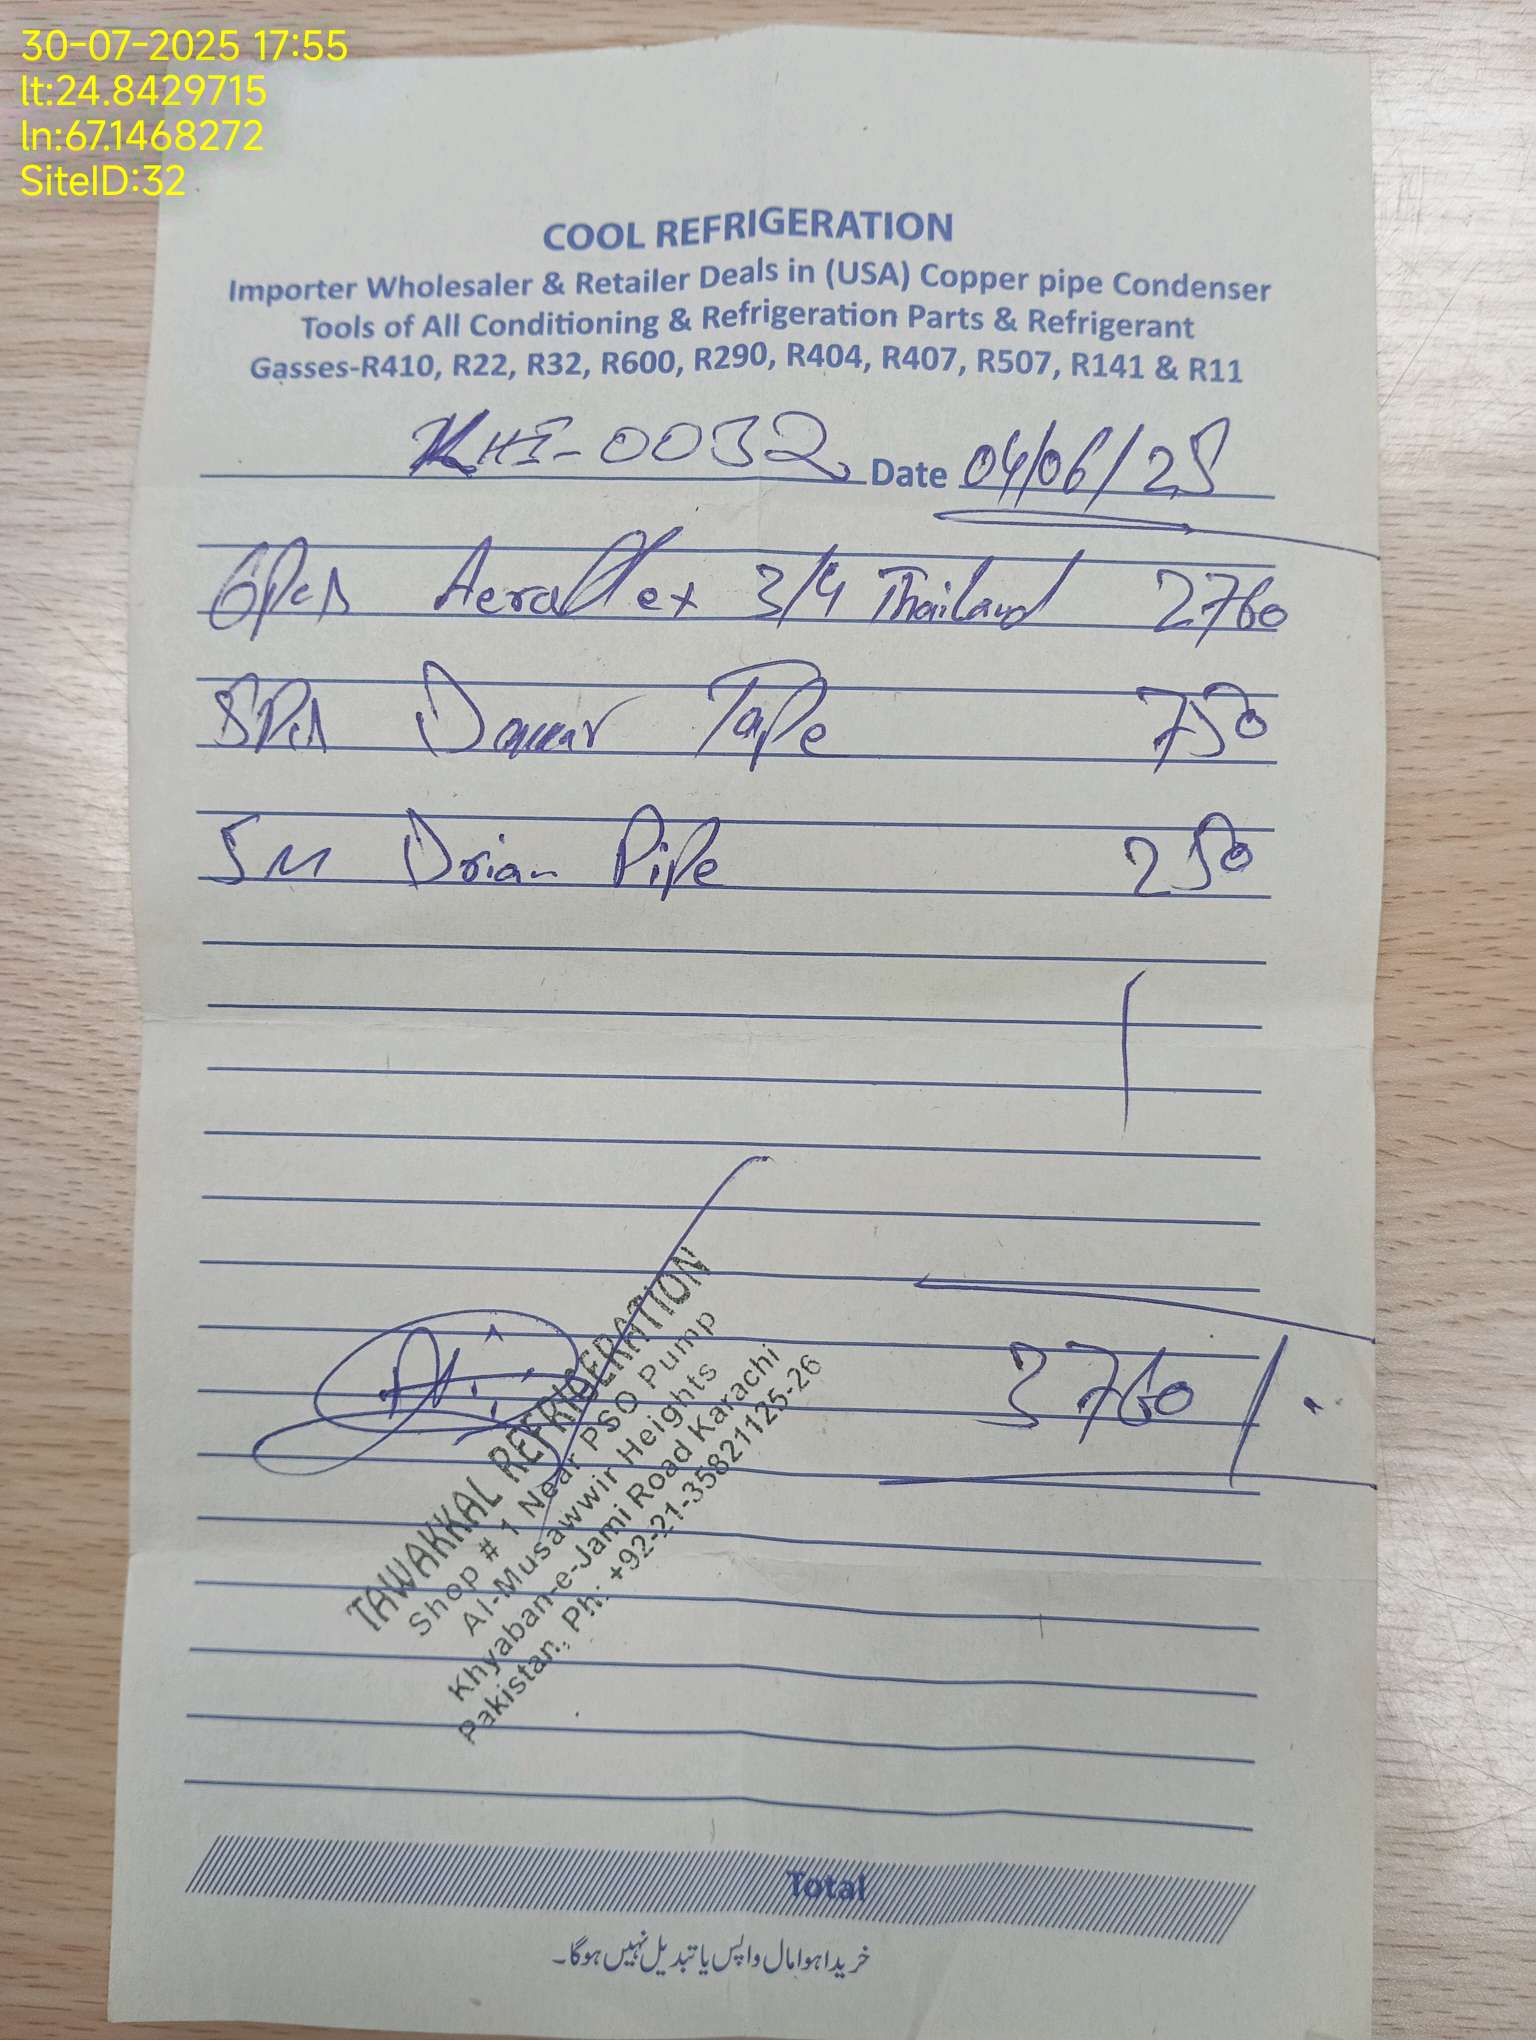 30-07-2025 17:55
lt:24.8429715
ln:67.1468272
SiteID:32
COOL REFRIGERATION
Importer Wholesaler & Retailer Deals in (USA) Copper pipe Condenser
Tools of All Conditioning & Refrigeration Parts & Refrigerant
Gasses-R410, R22, R32, R600, R290, R404, R407, R507, R141 & R11
KHI-0032 Date 04/06/25
6Pcs Aeroflex 3/4 Thailand 2760
5Pcs Tape 750
5M Drian Pipe 250
3760/.
TAWAKKAL REFRIGERATION
Shop # 1 Near PSO Pump
Al-Musawwir Heights
Khyaban-e-Jami Road Karachi
Pakistan, Ph: +92-21-35821125-26
Total
خریدا ہوا مال واپس یا تبدیل نہیں ہوگا۔